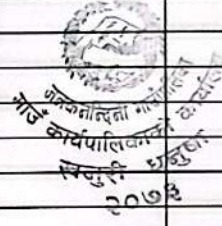 जनकनन्दिनी गाउँपालिका
गाउँ कार्यपालिकाको कार्यालय
खजुरी धनुषा
२०७३